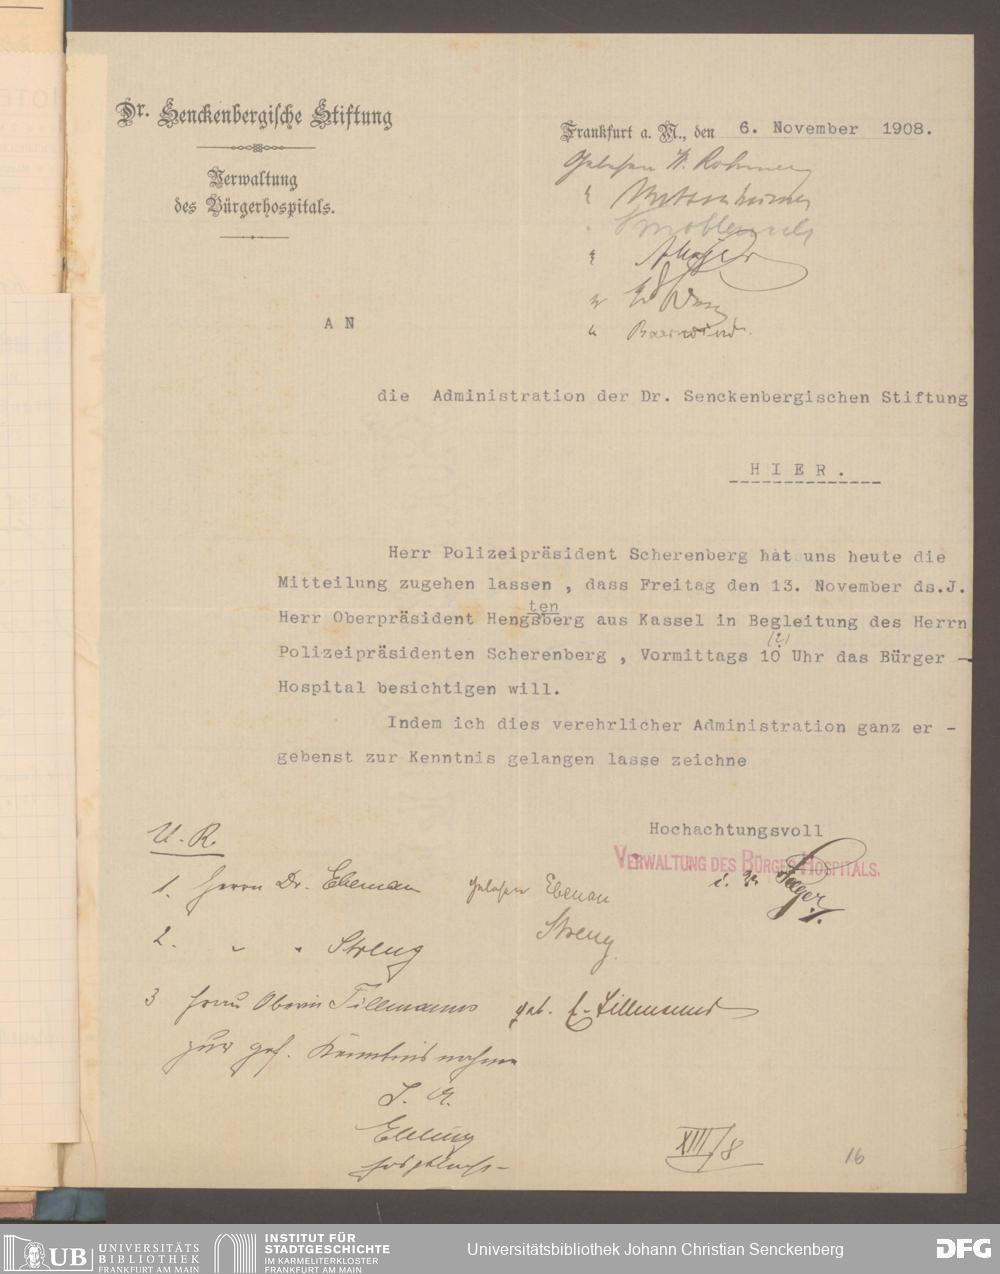 Dr. Senckenbergische Stiftung
Verwaltung
des Bürgerhospitals.
Frankfurt a. M., den 6. November 1908.
Gelesen W. Rohmer
"
"
"
"
" Baerwind.
A N
die Administration der Dr. Senckenbergischen Stiftung
H I E R .
Herr Polizeipräsident Scherenberg hat uns heute die
Mitteilung zugehen lassen , dass Freitag den 13. November ds.J.
ten
Herr Oberpräsident Hengsberg aus Kassel in Begleitung des Herrn
Polizeipräsidenten Scherenberg , Vormittags 10 Uhr das Bürger -
Hospital besichtigen will.
Indem ich dies verehrlicher Administration ganz er -
gebenst zur Kenntnis gelangen lasse zeichne
Hochachtungsvoll
VERWALTUNG DES BÜRGER-HOSPITALS.
U. R.
1. Herrn Dr. Ebenau gelesen Ebenau
2. " " Streng Streng
3 Frau Oberin Tillmanns gel. Tillmanns
zur gef. Kenntnisnahme
XIII/8
16
UB UNIVERSITÄTS
BIBLIOTHEK
FRANKFURT AM MAIN
INSTITUT FÜR
STADTGESCHICHTE
IM KARMELITERKLOSTER
FRANKFURT AM MAIN
Universitätsbibliothek Johann Christian Senckenberg
DFG